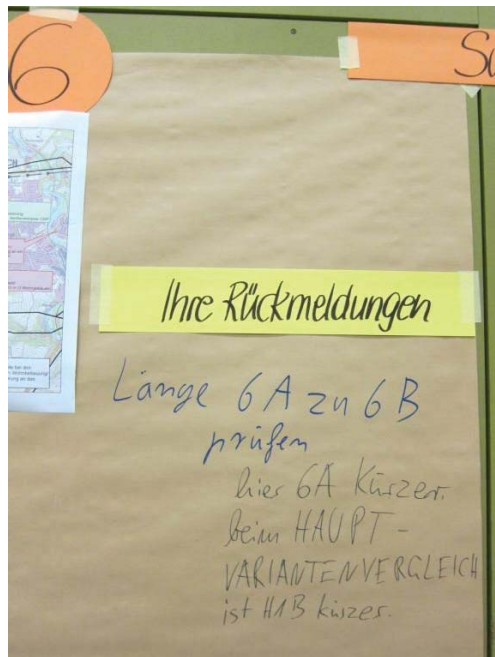 6
Ihre Rückmeldungen
Länge 6A zu 6B
prüfen
hier 6A Kürzer.
beim HAUPT-
VARIANTENVERGLEICH
ist H1B kürzer.